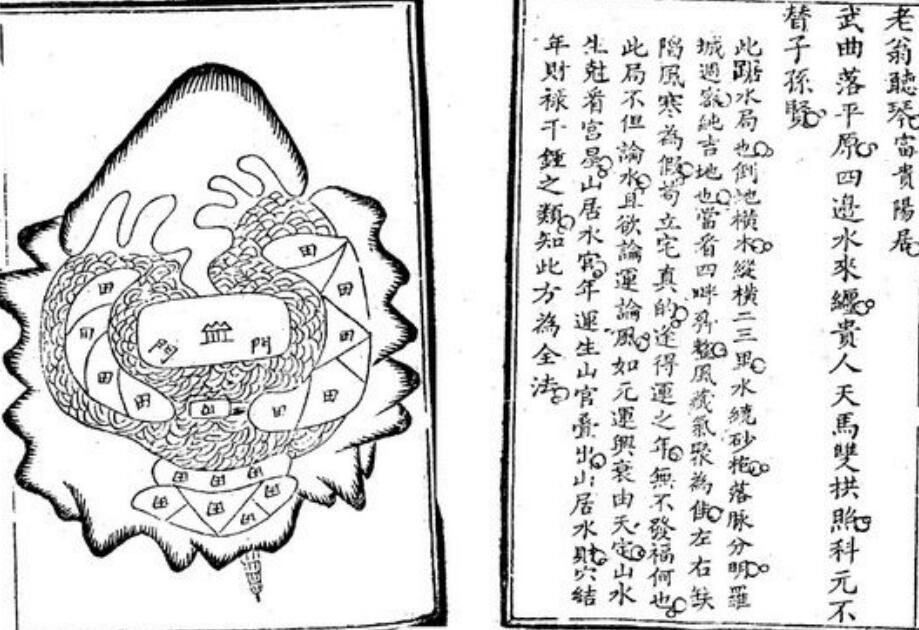 老翁聽琴富貴陽居
武曲落平原四邊水來纏貴人天馬雙拱照科元不
替子孫賢
此踞水局也倒地橫木縱橫二三里水繞砂抱落脉分明羅
城週密純吉地也當看四畔界整風藏氣聚為佳左右缺
陷風寒為假苟立宅真的逢得運之年無不發福何也
此局不但論水且欲論運論風如元運興衰由天定山水
生尅看宮星山居水宮年運生山官疊出山居水財穴結
年財祿千鍾之類知此方為全法
田
田
田
田
田
田
田
田
門
門
田
田
田
田
田
田